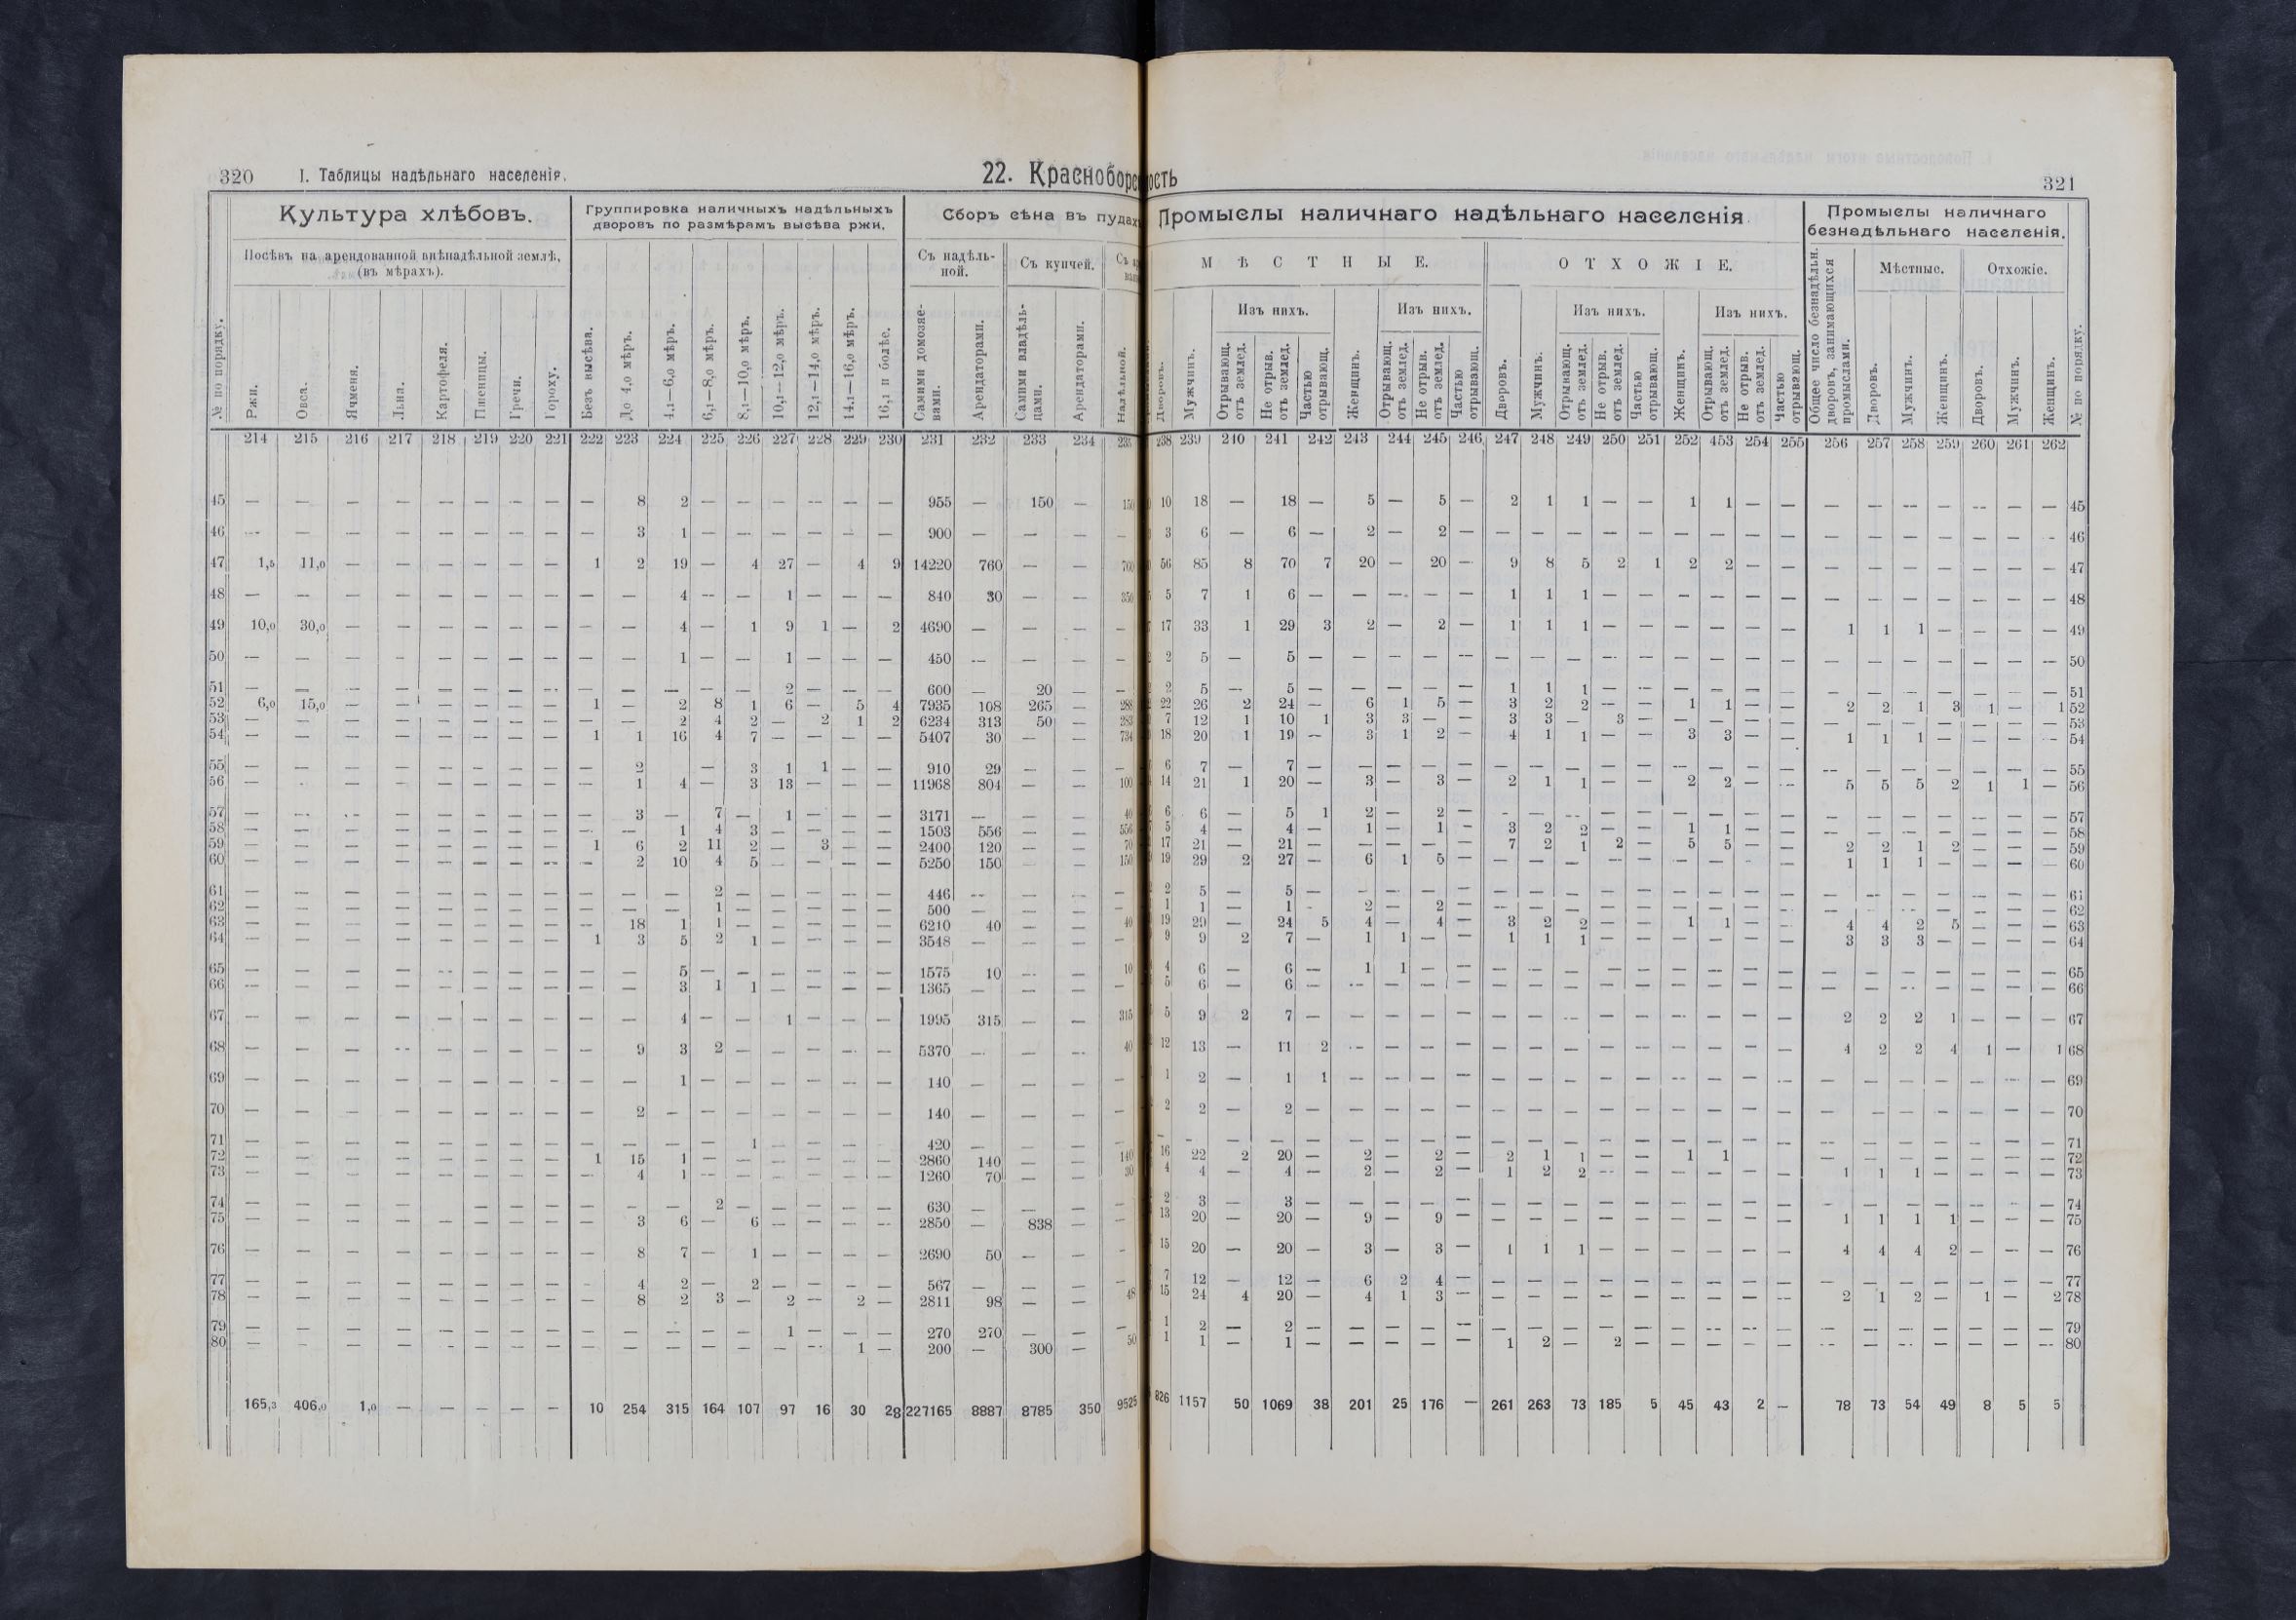 320 I. Таблицы надѣльнаго населенія. 22. Красноборс
Культура хлѣбовъ. Группировка наличныхъ надѣльныхъ дворовъ по размѣрамъ высѣва ржи. Сборъ сѣна въ пудах
Посѣвъ на арендованной внѣнадѣльной землѣ, (въ мѣрахъ). Съ надѣль-ной. Съ купчей.
№ по порядку. Ржи. Овса. Ячменя. Льна. Картофеля. Пшеницы. Гречи. Гороху. Безъ высѣва. До 4,0 мѣръ. 4,1—6,0 мѣръ. 6,1—8,0 мѣръ. 8,1—10,0 мѣръ. 10,1—12,0 мѣръ. 12,1—14,0 мѣръ. 14,1—16,0 мѣръ. 16,1 и болѣе. Самими домохозяе-вами. Арендаторами. Самими владѣль-цами. Арендаторами. Надѣльной.
214 215 216 217 218 219 220 221 222 223 224 225 226 227 228 229 230 231 232 233 234 235
45 — — — — — — — — — 8 2 — — — — — — 955 — 150 — 150
46 — — — — — — — — — 3 1 — — — — — — 900 — — — —
47 1,5 11,0 — — — — — — 1 2 19 — 4 27 — 4 9 14220 760 — — 760
48 — — — — — — — — — — 4 — — 1 — — — 840 30 — — 350
49 10,0 30,0 — — — — — — — — 4 — 1 9 1 — 2 4690 — — — —
50 — — — — — — — — — — 1 — — 1 — — — 450 — — — —
51 — — — — — — — — — — — — — 2 — — — 600 — 20 — —
52 6,0 15,0 — — — — — — 1 — 2 8 1 6 — 5 4 7935 108 265 — 288
53 — — — — — — — — — — 2 4 2 — 2 1 2 6234 313 50 — 283
54 — — — — — — — — 1 1 16 4 7 — — — — 5407 30 — — 734
55 — — — — — — — — — 2 — 3 1 1 — — 910 29 — — —
56 — — — — — — — — — 1 4 — 3 13 — — — 11968 804 — — 100
57 — — — — — — — — — 3 — 7 — 1 — — — 3171 — — — 40
58 — — — — — — — — — — 1 4 3 — — — — 1503 556 — — 556
59 — — — — — — — — 1 6 2 11 2 — 3 — — 2400 120 — — 70
60 — — — — — — — — — 2 10 4 5 — — — — 5250 150 — — 150
61 — — — — — — — — — — — 2 — — — — — 446 — — — —
62 — — — — — — — — — — — 1 — — — — — 500 — — — —
63 — — — — — — — — — 18 1 1 — — — — — 6210 40 — — 40
64 — — — — — — — — 1 3 5 2 1 — — — — 3548 — — — —
65 — — — — — — — — — — 5 — — — — — — 1575 10 — — 10
66 — — — — — — — — — — 3 1 1 — — — — 1365 — — — —
67 — — — — — — — — — — 4 — — 1 — — — 1995 315 — — 315
68 — — — — — — — — — 9 3 2 — — — — — 5370 — — — 40
69 — — — — — — — — — — 1 — — — — — — 140 — — — —
70 — — — — — — — — — 2 — — — — — — — 140 — — — —
71 — — — — — — — — — — — — 1 — — — — 420 — — — —
72 — — — — — — — — 1 15 1 — — — — — — 2860 140 — — 140
73 — — — — — — — — — 4 1 — — — — — — 1260 70 — — 30
74 — — — — — — — — — — — 2 — — — — — 630 — — — —
75 — — — — — — — — — 3 6 — 6 — — — — 2850 — 838 — —
76 — — — — — — — — — 8 7 — 1 — — — — 2690 50 — — —
77 — — — — — — — — — 4 2 — 2 — — — — 567 — — — —
78 — — — — — — — — — 8 2 3 — 2 — 2 — 2811 98 — — 48
79 — — — — — — — — — — — — — 1 — — — 270 270 — — —
80 — — — — — — — — — — — — — — — 1 — 200 — 300 — 50
165,3 406,0 1,0 — — — — — 10 254 315 164 107 97 16 30 28 227165 8887 8785 350 9525
ость 321
Промыслы наличнаго надѣльнаго населенія Промыслы наличнаго безнадѣльнаго населенія.
МѢСТНЫЕ. ОТХОЖІЕ. Мѣстные. Отхожіе.
Изъ нихъ. Изъ нихъ. Изъ нихъ. Изъ нихъ.
Дворовъ. Мужчинъ. Отрывающ. отъ землед. Не отрыв. отъ землед. Частью отрывающ. Женщинъ. Отрывающ. отъ землед. Не отрыв. отъ землед. Частью отрывающ. Дворовъ. Мужчинъ. Отрывающ. отъ землед. Не отрыв. отъ землед. Частью отрывающ. Женщинъ. Отрывающ. отъ землед. Не отрыв. отъ землед. Частью отрывающ. Общее число безнадѣльн. дворовъ, занимающихся промыслами. Дворовъ. Мужчинъ. Женщинъ. Дворовъ. Мужчинъ. Женщинъ. № по порядку.
238 239 240 241 242 243 244 245 246 247 248 249 250 251 252 453 254 255 256 257 258 259 260 261 262
10 18 — 18 — 5 — 5 — 2 1 1 — — 1 1 — — — — — — — — — 45
3 6 — 6 — 2 — 2 — — — — — — — — — — — — — — — — — 46
56 85 8 70 7 20 — 20 — 9 8 5 2 1 2 2 — — — — — — — — — 47
5 7 1 6 — — — — — 1 1 1 — — — — — — — — — — — — — 48
17 33 1 29 3 2 — 2 — 1 1 1 — — — — — — 1 1 1 — — — — 49
2 5 — 5 — — — — — — — — — — — — — — — — — — — — — 50
2 5 — 5 — — — — — 1 1 1 — — — — — — — — — — — — — 51
22 26 2 24 — 6 1 5 — 3 2 2 — — 1 1 — — 2 2 1 3 1 — 1 52
7 12 1 10 1 3 3 — — 3 3 — 3 — — — — — — — — — — — — 53
18 20 1 19 — 3 1 2 — 4 1 1 — — 3 3 — — 1 1 1 — — — — 54
6 7 — 7 — — — — — — — — — — — — — — — — — — — — — 55
14 21 1 20 — 3 — 3 — 2 1 1 — — 2 2 — — 5 5 5 2 1 1 — 56
6 6 — 5 1 2 — 2 — — — — — — — — — — — — — — — — — 57
5 4 — 4 — 1 — 1 — 3 2 2 — — 1 1 — — — — — — — — — 58
17 21 — 21 — — — — — 7 2 1 2 — 5 5 — — 2 2 1 2 — — — 59
19 29 2 27 — 6 1 5 — — — — — — — — — — 1 1 1 — — — — 60
2 5 — 5 — — — — — — — — — — — — — — — — — — — — — 61
1 1 — 1 — 2 — 2 — — — — — — — — — — — — — — — — — 62
19 29 — 24 5 4 — 4 — 3 2 2 — — 1 1 — — 4 4 2 5 — — — 63
9 9 2 7 — 1 1 — — 1 1 1 — — — — — — 3 3 3 — — — — 64
4 6 — 6 — 1 1 — — — — — — — — — — — — — — — — — — 65
5 6 — 6 — — — — — — — — — — — — — — — — — — — — — 66
5 9 2 7 — — — — — — — — — — — — — — 2 2 2 1 — — — 67
12 13 — 11 2 — — — — — — — — — — — — — 4 2 2 4 1 — 1 68
1 2 — 1 1 — — — — — — — — — — — — — — — — — — — — 69
2 2 — 2 — — — — — — — — — — — — — — — — — — — — — 70
— — — — — — — — — — — — — — — — — — — — — — — — — 71
16 22 2 20 — 2 — 2 — 2 1 1 — — 1 1 — — — — — — — — 72
4 4 — 4 — 2 — 2 — 1 2 2 — — — — — — 1 1 1 — — — — 73
2 3 — 3 — — — — — — — — — — — — — — — — — — — — — 74
13 20 — 20 — 9 — 9 — — — — — — — — — — 1 1 1 1 — — — 75
15 20 — 20 — 3 — 3 — 1 1 1 — — — — — — 4 4 4 2 — — — 76
7 12 — 12 — 6 2 4 — — — — — — — — — — — — — — — — — 77
15 24 4 20 — 4 1 3 — — — — — — — — — — 2 1 2 — 1 — 2 78
1 2 — 2 — — — — — — — — — — — — — — — — — — — — — 79
1 1 — 1 — — — — — 1 2 — 2 — — — — — — — — — — — — 80
826 1157 50 1069 38 201 25 176 — 261 263 73 185 5 45 43 2 — 78 73 54 49 8 5 5